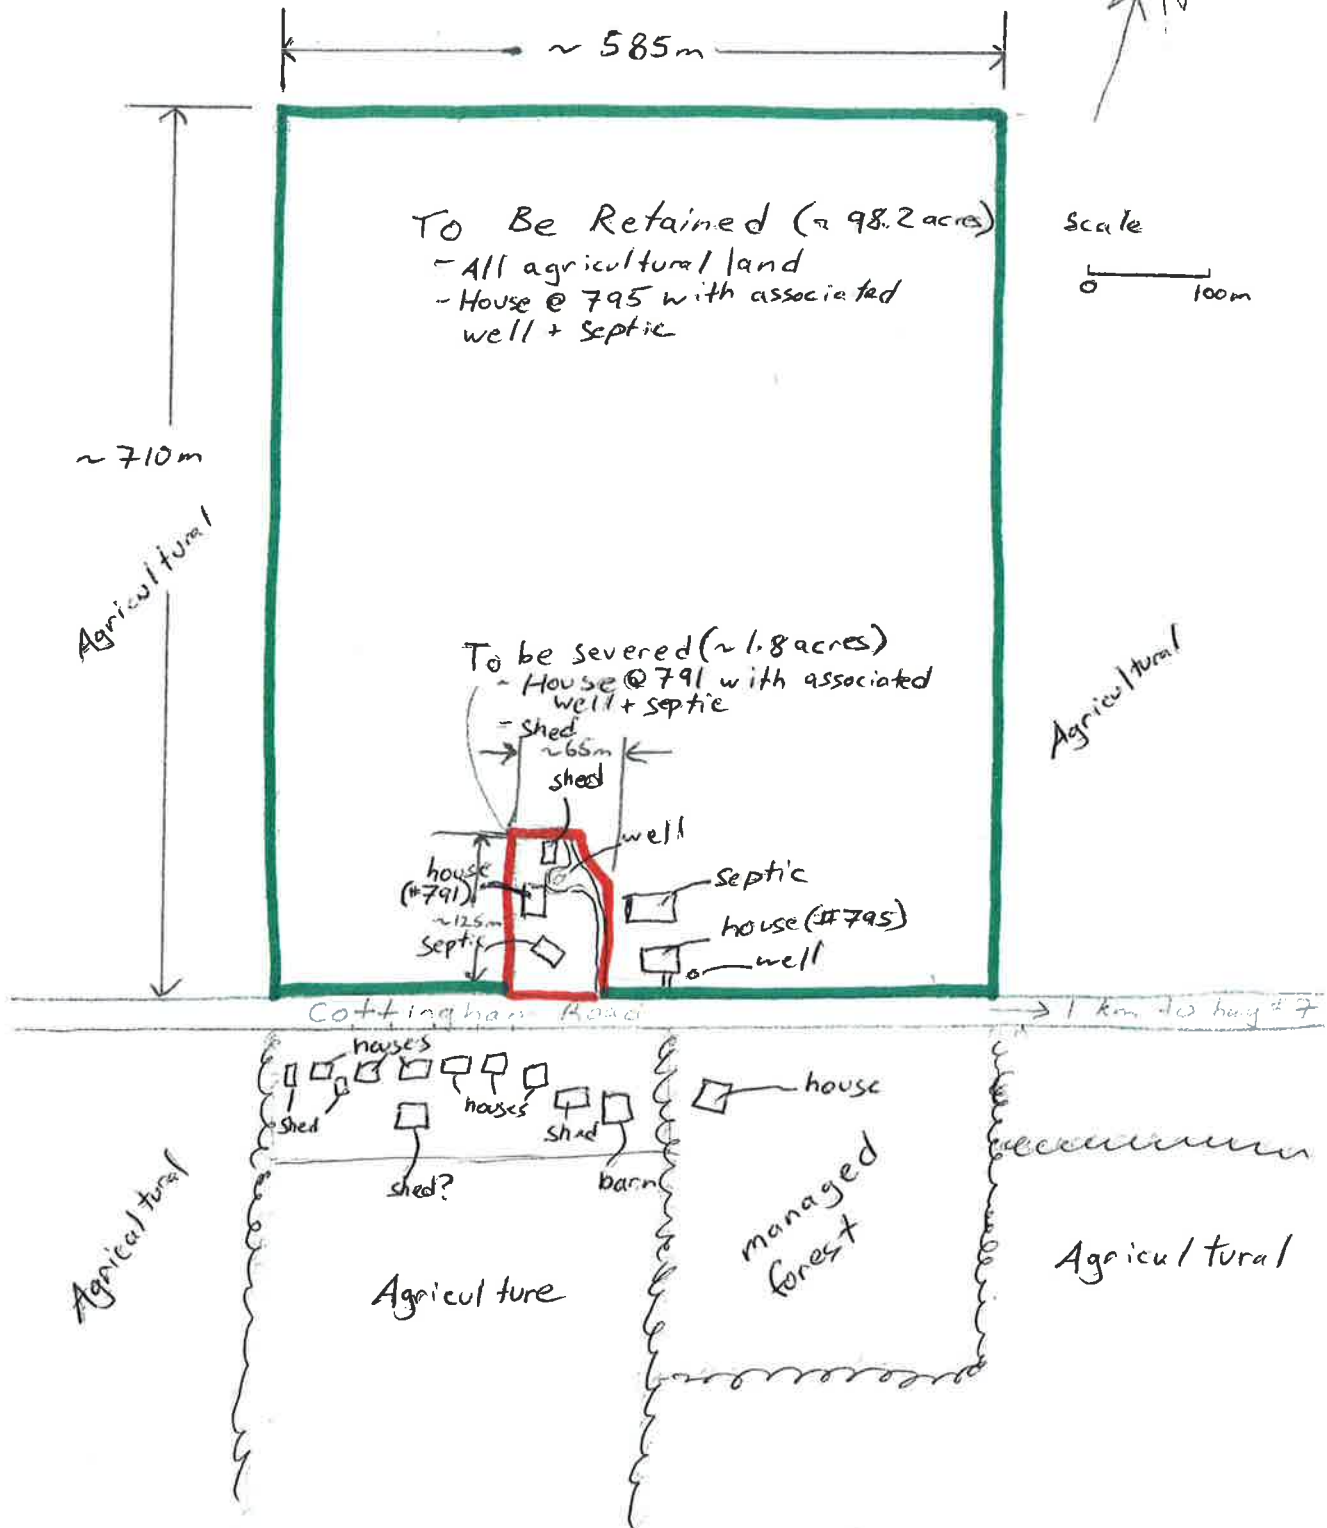 N
~ 585m
To Be Retained (~ 98.2 acres)
- All agricultural land
- House @ 795 with associated
well + septic
Scale
0 100m
~ 710m
Agricultural
To be severed (~ 1.8 acres)
- House @ 791 with associated
well + septic
- shed
~65m
shed
Agricultural
well
house
(#791)
~125m
septic
septic
house (#795)
well
Cottingham Road
→ 1 km to hwy #7
houses
shed
houses
shed
barn
shed?
house
managed
forest
Agricultural
Agriculture
Agricultural